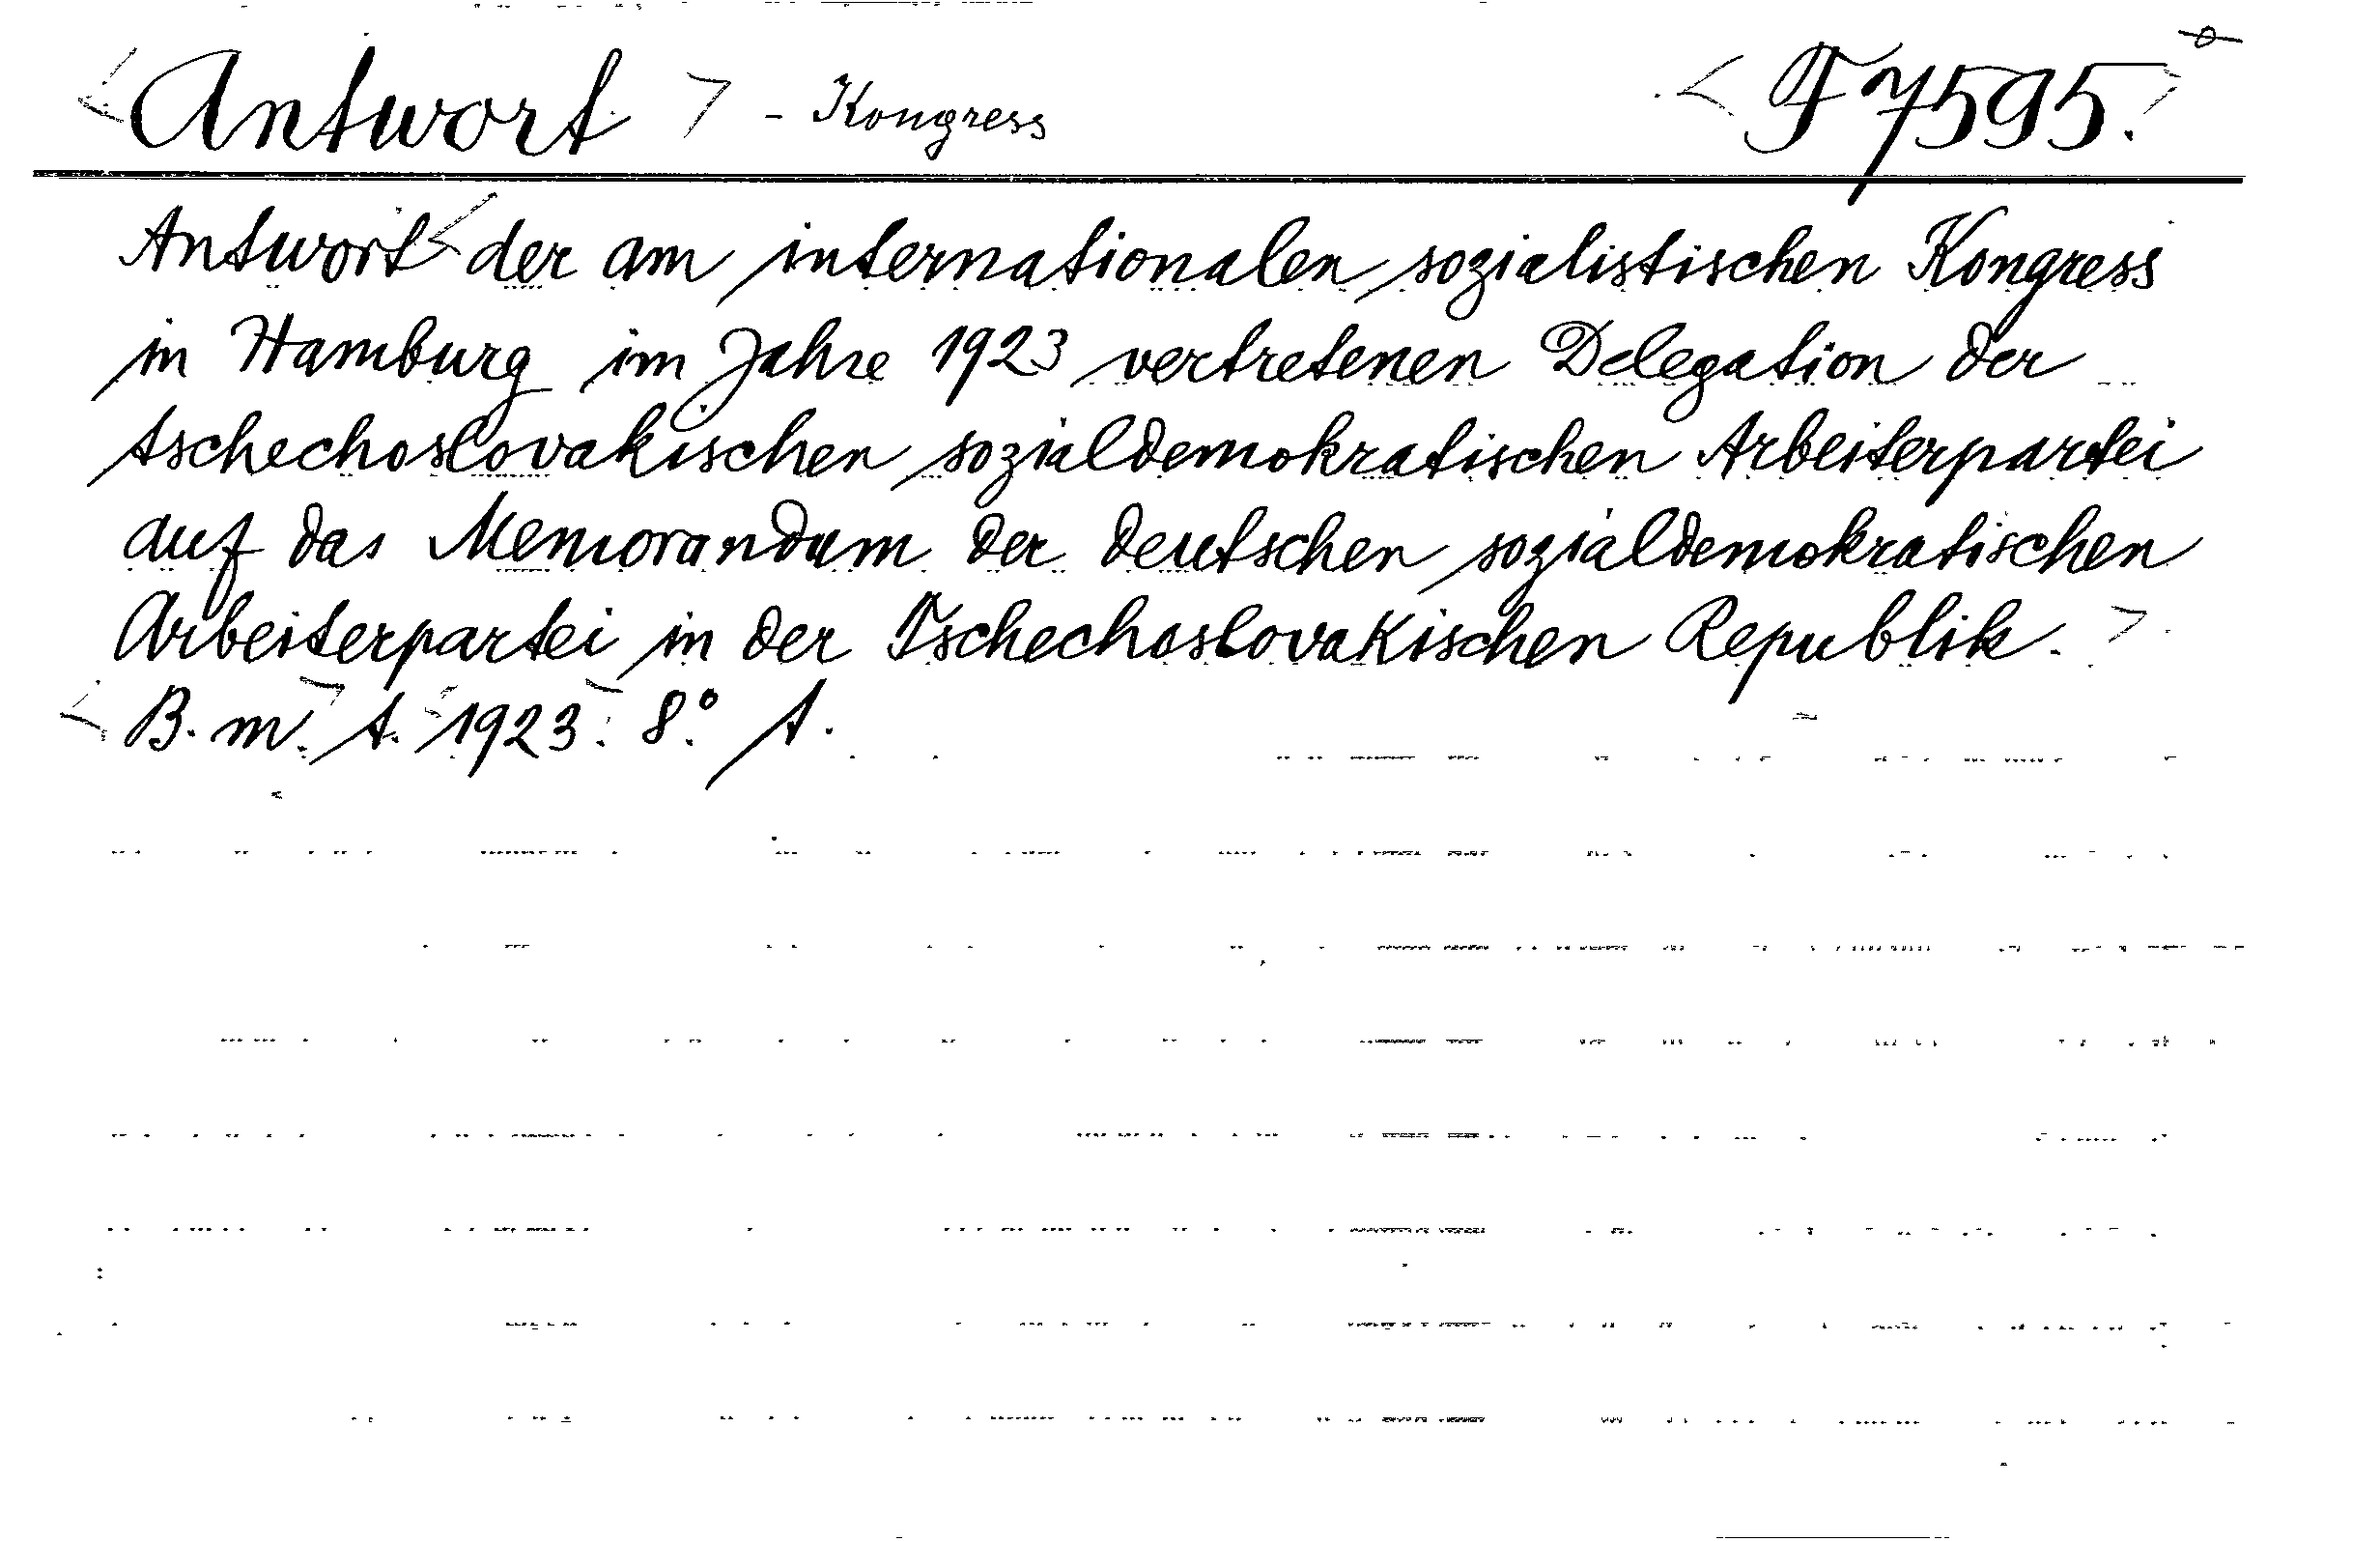 < Antwort > - Kongress < F 7595. >
Antwort < der am internationalen sozialistischen Kongress
in Hamburg im Jahre 1923 vertretenen Delegation der
tschechoslovakischen sozialdemokratischen Arbeiterpartei
auf das Memorandum der deutschen sozialdemokratischen
Arbeiterpartei in der Tschechoslovakischen Republik. >
< B. m. t. 1923. 8° t.